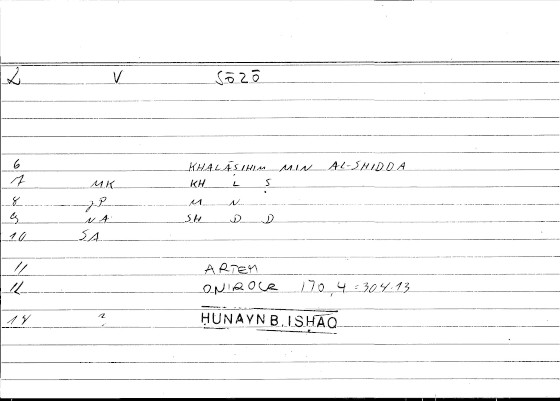 2 V SŌZŌ
6 KHALĀṢIHIM MIN AL-SHIDDA
7 MK KH L Ṣ
8 JP M N
9 NA SH D D
10 SA
11 ARTEM
12 ONIROCR 170,4 = 304.13
14 ? ḤUNAYN B. ISḤĀQ